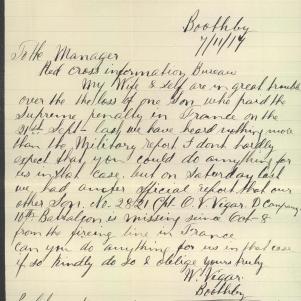 Boothby
7/11/17
To the Manager
Red Cross information Bureau
My Wife & self are in great trouble
over the the loss of one Son who paid the
Supreme penalty in France on the
21st Sept last we have heard nothing more
than the Military report I dont hardly
expect that you could do anything for
us in that case. but on Saturday last
we had another official report that our
other Son. No. 2821 Cpl. O. V. Vigar. D Company
10th Battalion is missing since Oct-8
from the fireing line in France
can you do anything for us in that case
if so kindly do so & oblige yours truly
W. Vigar.
Boothby